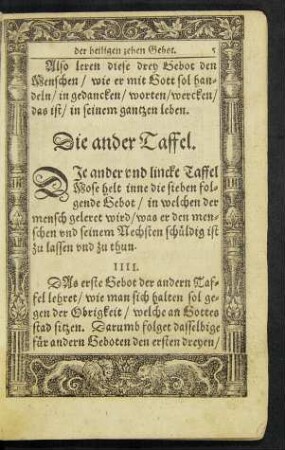 der heiligen zehen Gebot. 5
Also leren diese drey Gebot den
Menschen / wie er mit Gott sol han-
deln / in gedancken / worten / wercken /
das ist / in seinem gantzen leben.
Die ander Taffel.
DIe ander vnd lincke Taffel
Mose helt inne die sieben fol-
gende Gebot / in welchen der
mensch geleret wird / was er den men-
schen vnd seinem Nechsten schüldig ist
zu lassen vnd zu thun.
IIII.
DAs erste Gebot der andern Taf-
fel lehret / wie man sich halten sol ge-
gen der Obrigkeit / welche an Gottes
stad sitzen. Darumb folget dasselbige
für andern Geboten den ersten dreyen /